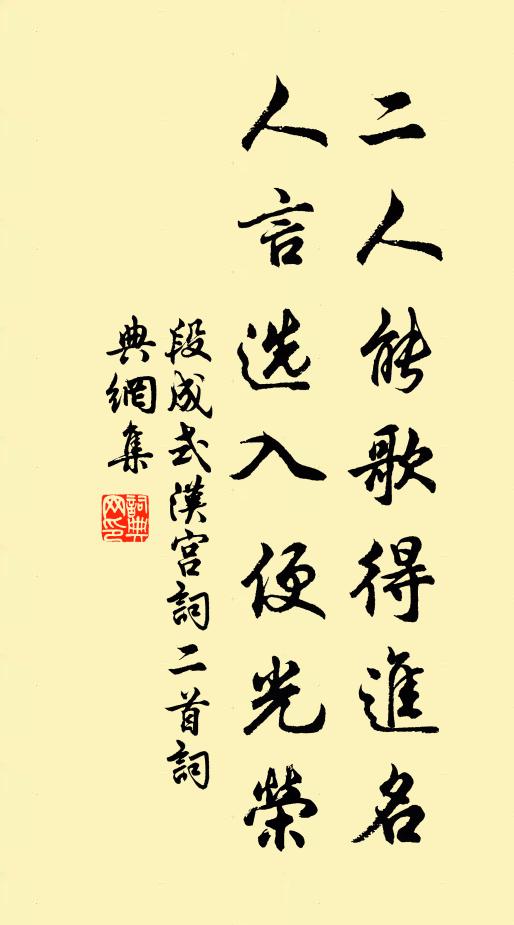 二人能歌得進名
人言选入便光榮
段成式漢宮詞二首詞
典網集
詞典网印